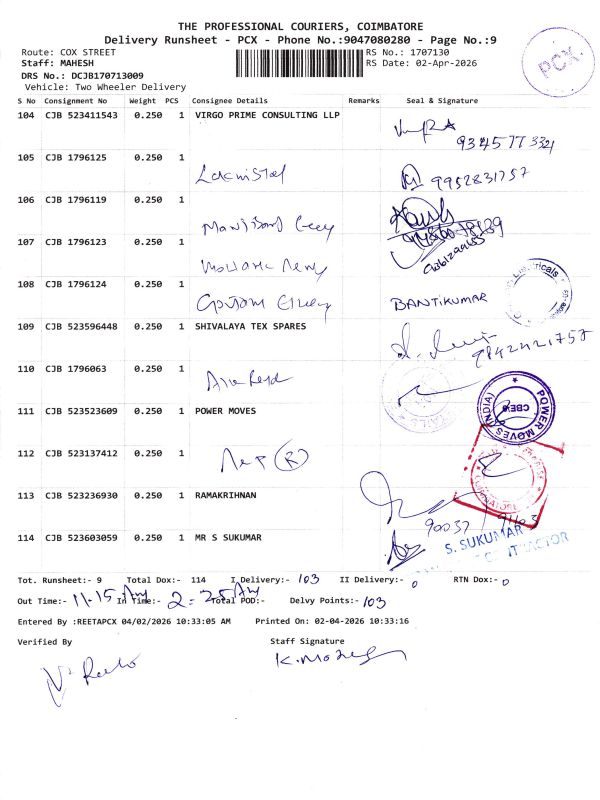 THE PROFESSIONAL COURIERS, COIMBATORE
Delivery Runsheet - PCX - Phone No.:9047080280 - Page No.:9
Route: COX STREET
RS No.: 1707130
Staff: MAHESH
RS Date: 02-Apr-2026
DRS No.: DCJB170713009
Vehicle: Two Wheeler Delivery
PCX
S No Consignment No Weight PCS Consignee Details Remarks Seal & Signature
104 CJB 523411543 0.250 1 VIRGO PRIME CONSULTING LLP
105 CJB 1796125 0.250 1
9952831757
106 CJB 1796119 0.250 1
107 CJB 1796123 0.250 1
108 CJB 1796124 0.250 1
BANTIKUMAR
109 CJB 523596448 0.250 1 SHIVALAYA TEX SPARES
9842421757
110 CJB 1796063 0.250 1
111 CJB 523523609 0.250 1 POWER MOVES
POWER MOVES (INDIA)
CBE
112 CJB 523137412 0.250 1
113 CJB 523236930 0.250 1 RAMAKRIHNAN
90037 91103
114 CJB 523603059 0.250 1 MR S SUKUMAR
S. SUKUMAR
Tot. Runsheet:- 9 Total Dox:- 114 I Delivery:- 103 II Delivery:- 0 RTN Dox:- 0
Out Time:- 11-15 AM In Time:- 2=25 Total POD:- Delvy Points:- 103
Entered By :REETAPCX 04/02/2026 10:33:05 AM Printed On: 02-04-2026 10:33:16
Verified By Staff Signature